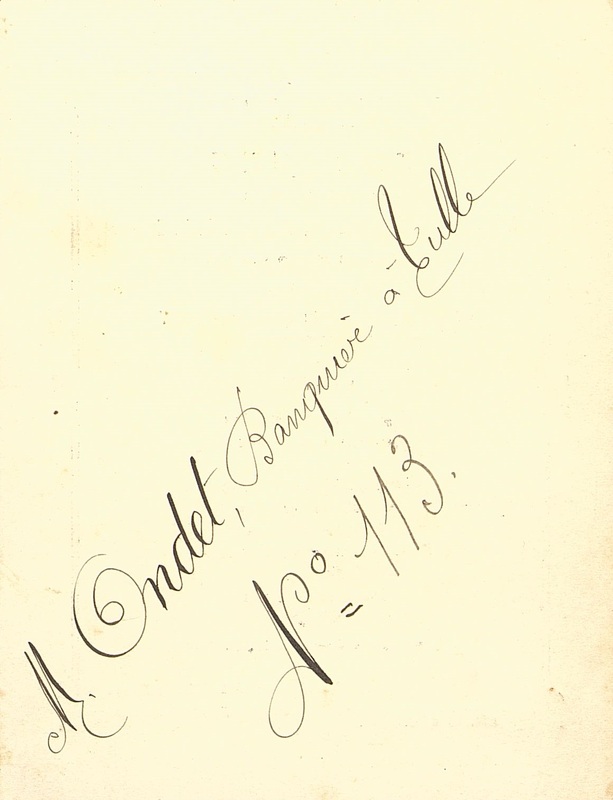 M. Ondet, Banquier à Tulle
Nº 113.